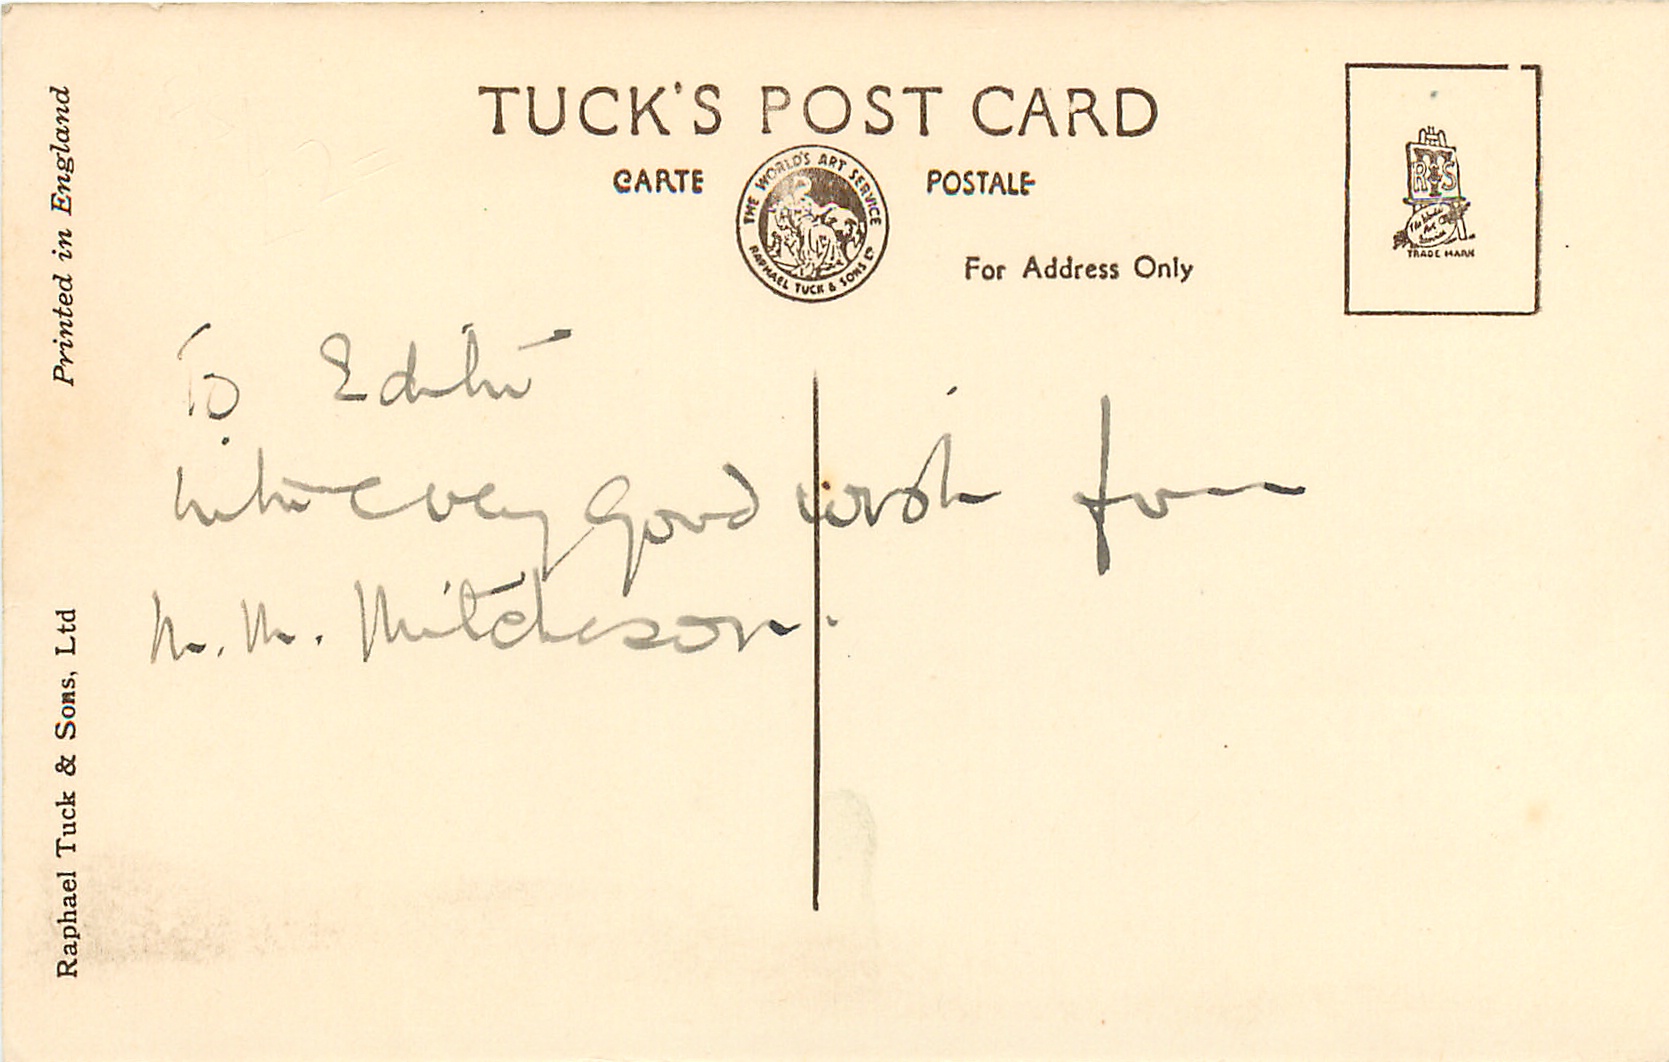 TUCK'S POST CARD
CARTE POSTALE
THE WORLD'S ART SERVICE
RAPHAEL TUCK & SONS LD
For Address Only
TRADE MARK
Printed in England
Raphael Tuck & Sons, Ltd
To Edith
with every good wish from
M. M. Mitcheson.